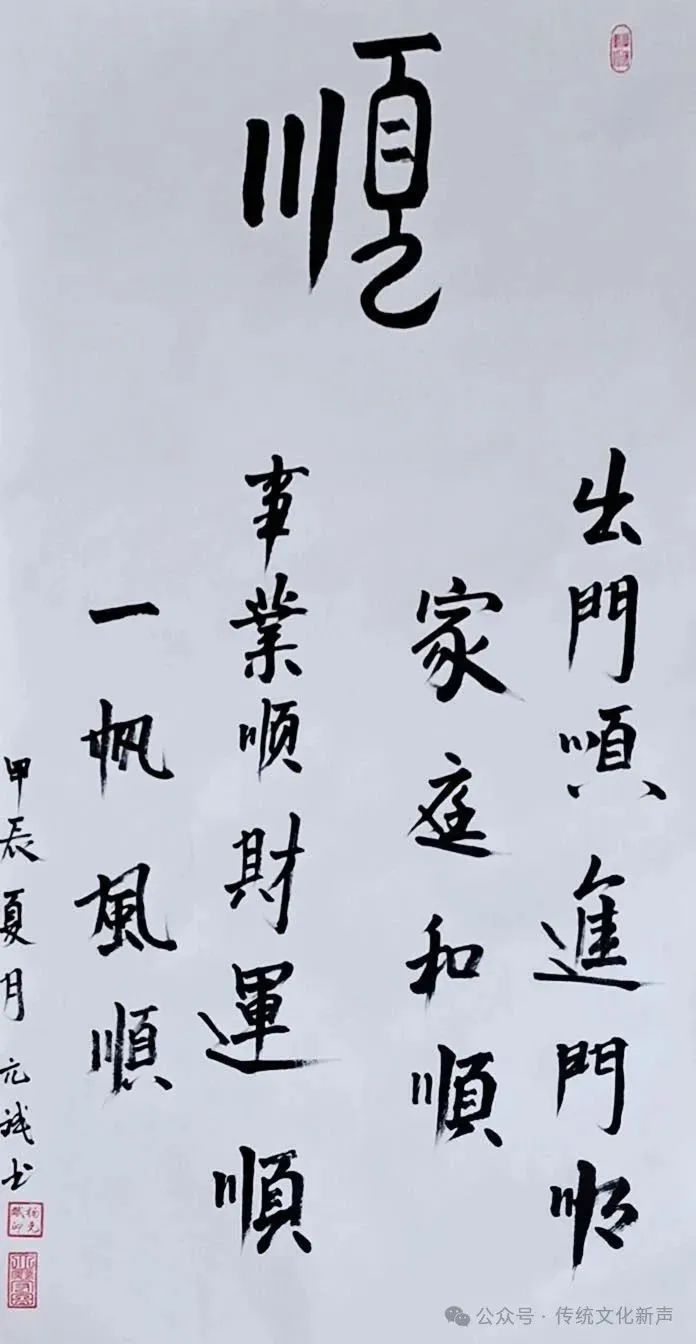 順
出門順進門順
家庭和順
事業顺財運順
一帆風順
甲辰夏月 元书
公众号 · 传统文化新声